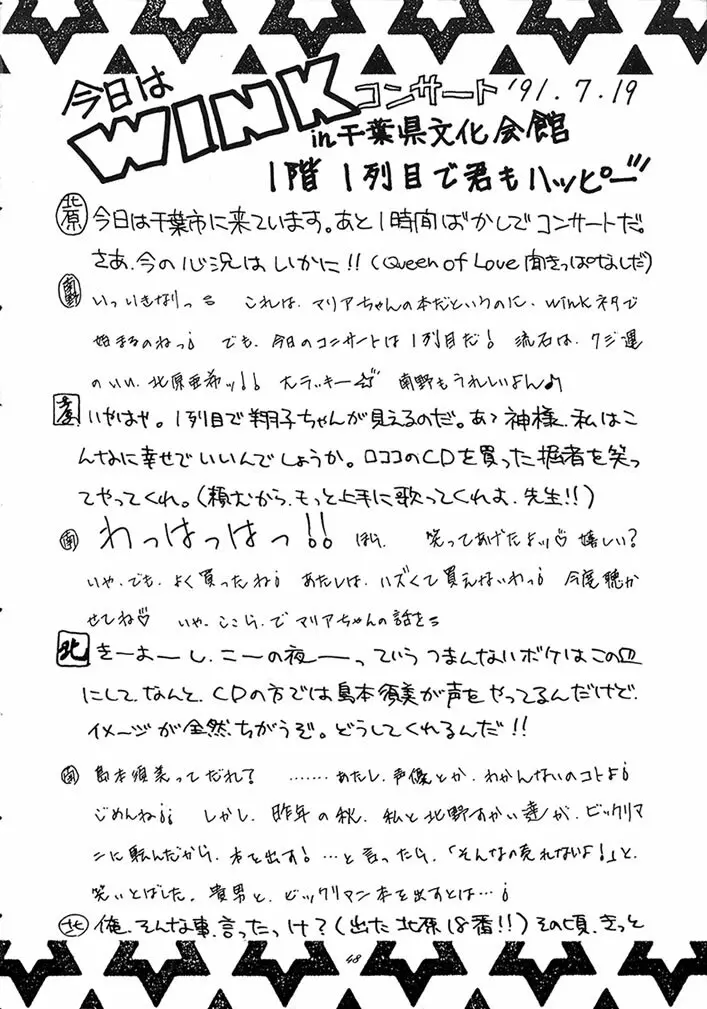 今日は WINK コンサート '91.7.19
in 千葉県文化会館
1階1列目で君もハッピー
北原 今日は千葉市に来ています。あと1時間ばかしでコンサートだ。
さあ、今の心況はいかに!!(Queen of Love 聞きっぱなしだ)
南野 いっいきなりっ これは、マリアちゃんの本だというのに、winkネタで
始まるのねっ¡ でも、今日のコンサートは1列目だ! 流石は、クジ運
のいい、北原亜希ッ!! 大ラッキー☆ 南野もうれしいよん♪
いやはや。1列目で翔子ちゃんが見えるのだ。あゝ神様、私はこ
んなに幸せでいいんでしょうか。ロココのCDを買った掘者を笑っ
てやってくれ。(頼むから、もっと上手に歌ってくれよ、先生!!)
南 わっはっはっ!! ほら、 笑ってあげたよッ♡ 嬉しい?
いや、でも、よく買ったね¡ あたしは、ハズくて買えないわっ¡ 今度聴か
せてね♡ いや、ここら、で マリアちゃんの話を
北 きーよーし、こーの夜ーーっていう つまんないボケはこの皿
にして、なんと、CDの方では島本須美が声をやってるんだけど、
イメージが全然ちがうぞ。どうしてくれるんだ!!
南 島本須美ってだれ? ……あたし、声優とか、わかんないのコトよ¡
ごめんね¡¡ しかし、昨年の秋、私と北野すかい達が、ビックリマ
ンに転んだから、本を出す!…と言ったら、「そんなの売れないよ!」と、
笑いとばした、貴男と、ビックリマン本を出すとは…¡
北 俺、そんな事、言ったっけ?(出た 北原18番!!)その頃、きっと
48